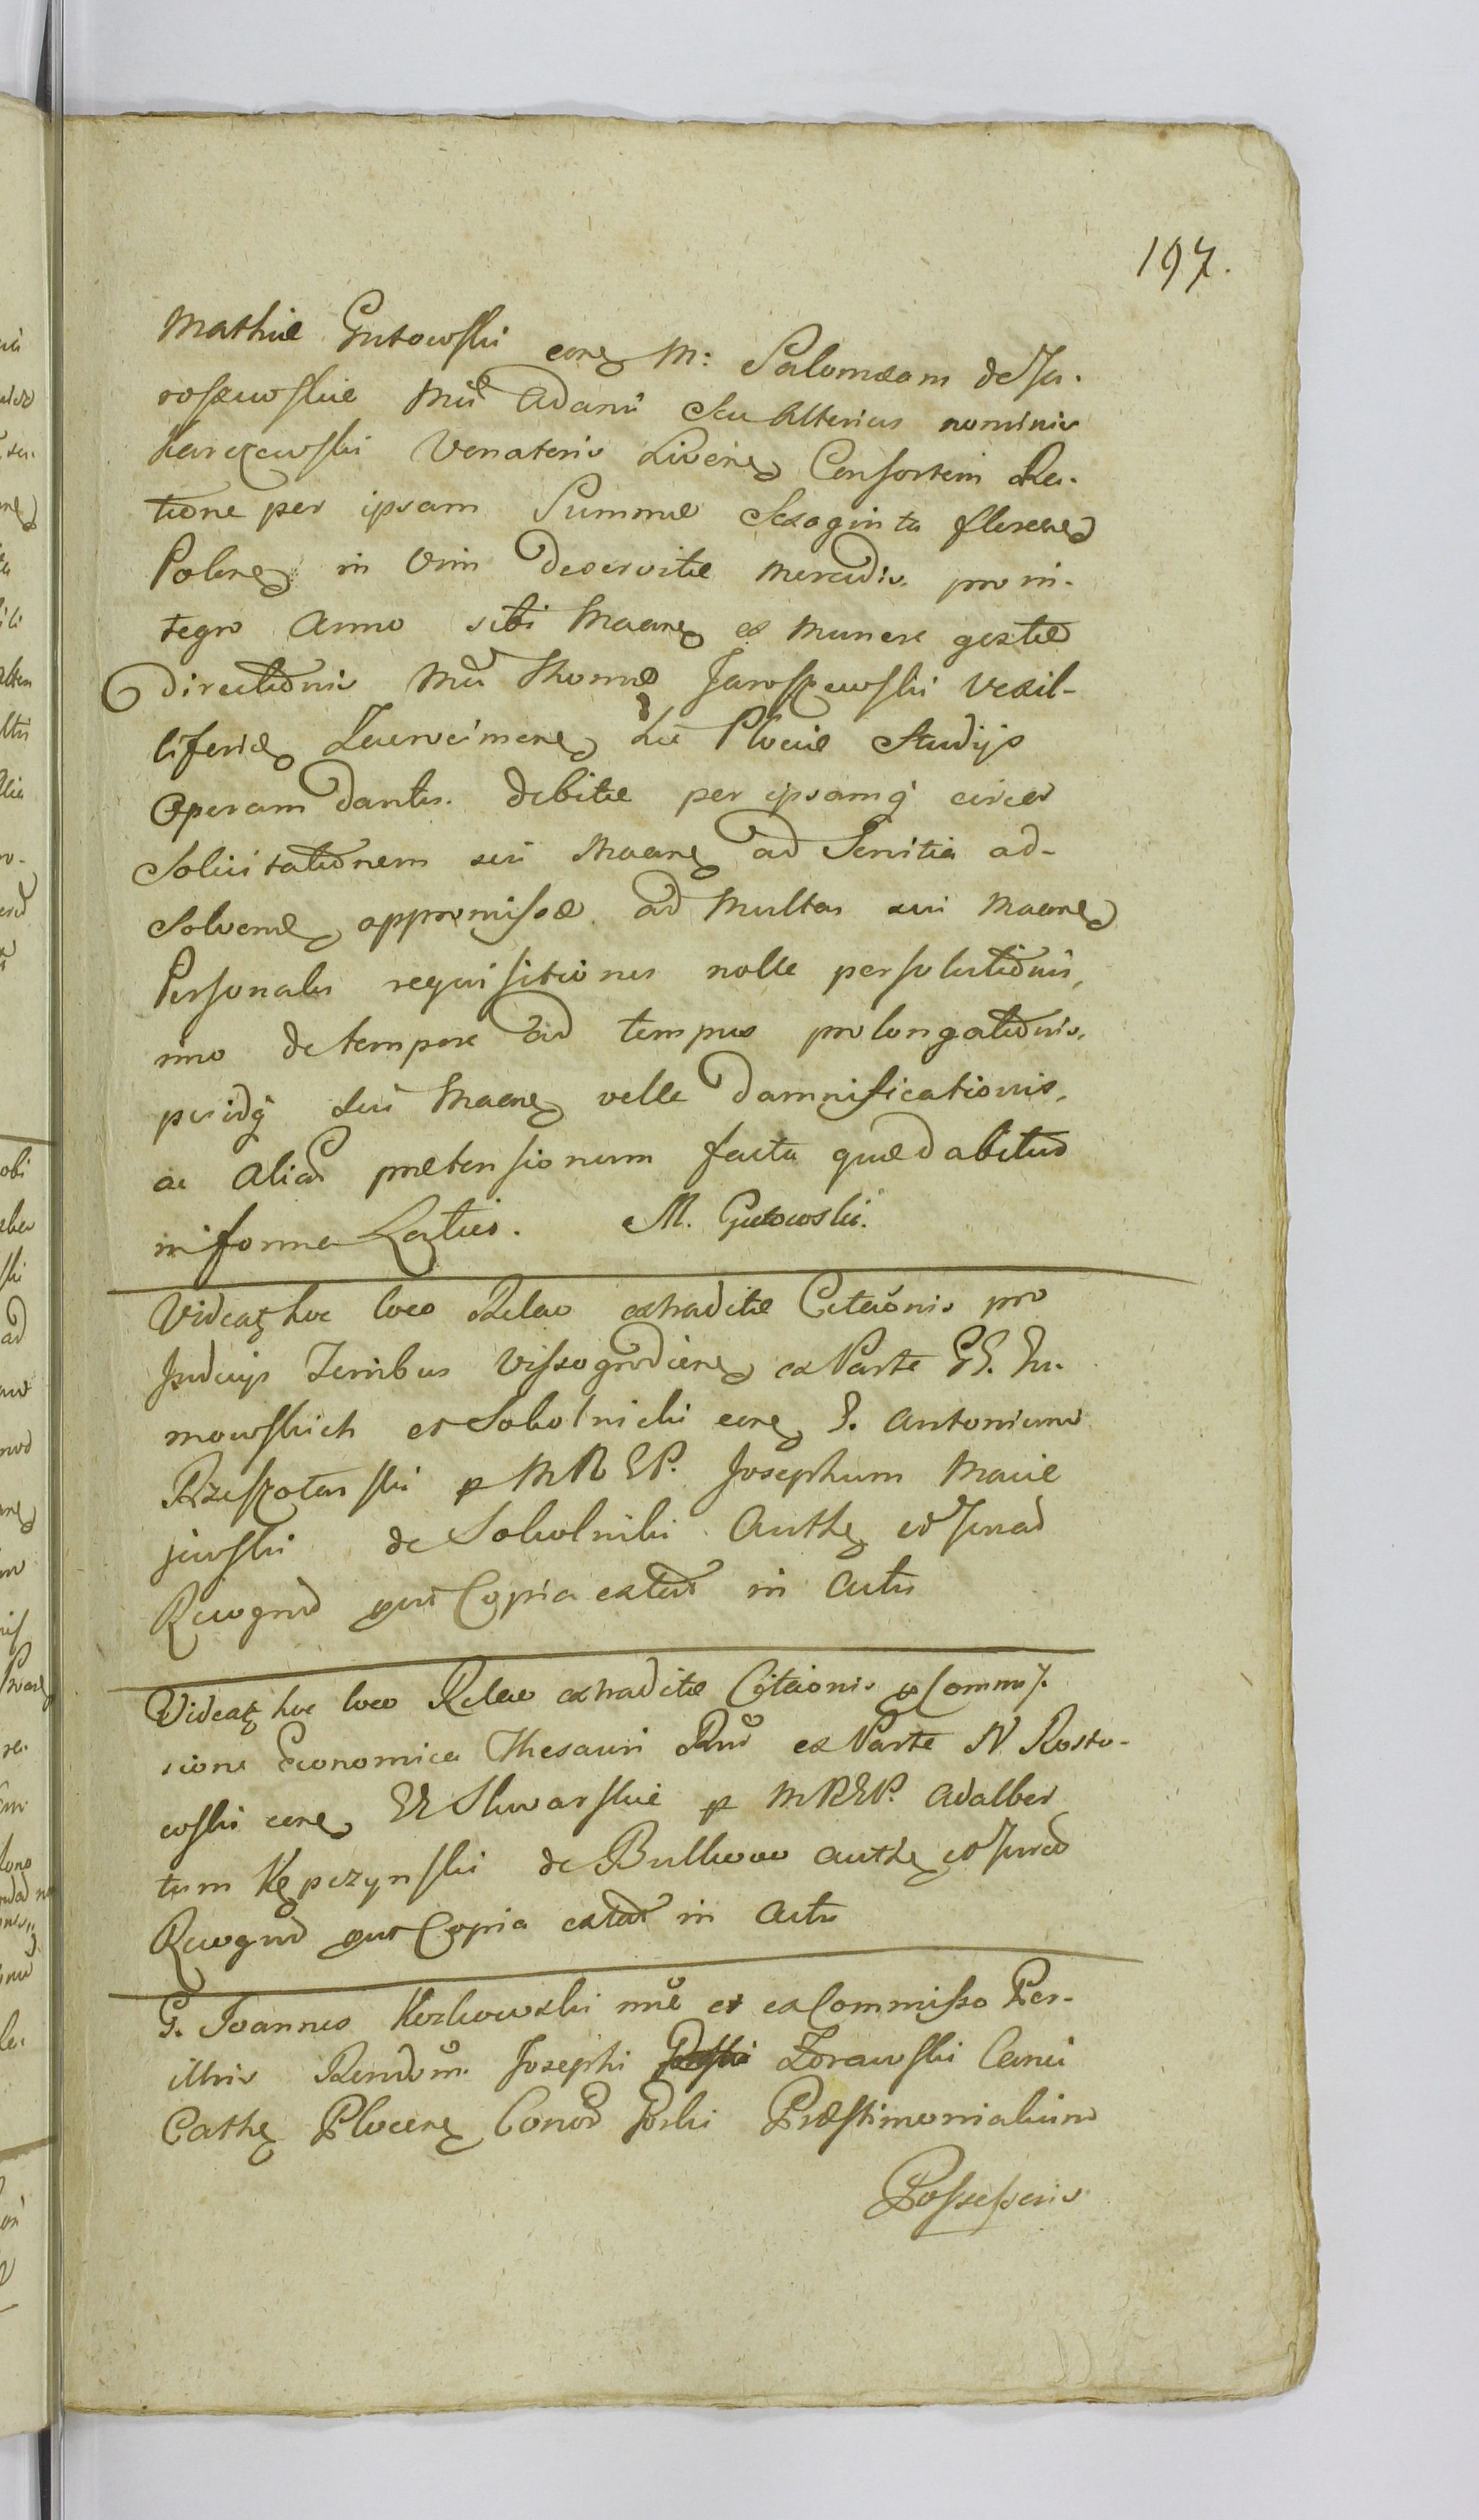 197.
Mathiæ Gutowski cone M: Salomeam de Ja-
roszewskie Mci Adami seu alterius nominis
Karczewski Venatoris Livene Consortem Ra-
tione per ipsam Summæ Sexaginta florene
Polone in vim deservitæ mercedis pro in-
tegro Anno sibi Maane ex munere gestæ
directionis Mci Thomæ Jaroszewski Vexil-
liferid Zawrimene hic Plociæ Studijs
Operam dantis debitæ per ipsamq circa
Solicitationem sui Maane ad Servitia ad-
solvendæ appromissæ ad multas sui Maane
Personales requisitiones nolle persolutionis,
imo de tempore ad tempus prolongationis,
peridq sui Maane velle damnificationis,
ac aliar prætensionum facta quæ dabitur
in forma Latius. M. Gutowski.
Videat hoc loco Relao extraditæ Citaonis pro
Judicijs Terribus Vissogrodiene ex Parte GG.
mowskich et Sokolnicki cone G. Antonium
Rzeszotarski p MRGP. Josephum Macie
jewski de Sokolniki Authe et Jurad
Recognd cujus Copia extat in Actis
Videat hoc loco Relao extraditæ Citaonis p Commis-
sione Economica Thesauri Rni ex Parte N Rosto-
wski cone Skwarskie p MRGP. Adalber
tum Kępczynski de Bulkowo authe et Jurad
Recognd cujus Copia extat in Actis
G. Joannes Kozłowski nne et ex Commisso Per-
illris Rendmi Josephi Zorawski Canci
Cathe Plocene Præstimonialium
Possessoris